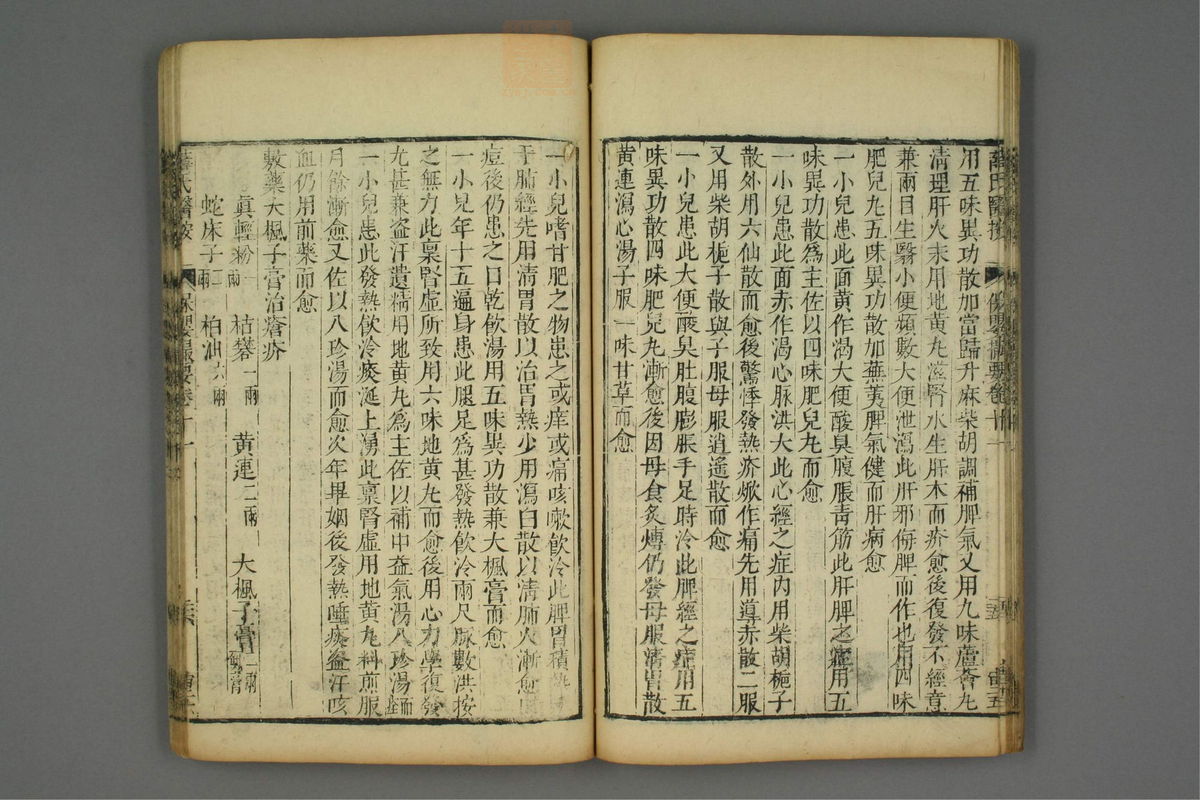 薛氏醫按 保嬰撮要卷十一
用五味異功散加當歸升麻柴胡調補脾氣又用九味蘆薈丸
清理肝火末用地黃丸滋腎水生肝木而疥愈後復發不經意
兼兩目生翳小便頻數大便泄瀉此肝邪侮脾而作也用四味
肥兒丸五味異功散加蕪荑脾氣健而肝病愈
一小兒患此面黃作渴大便酸臭腹脹青筋此肝脾之症用五
味異功散為主佐以四味肥兒丸而愈
一小兒患此面赤作渴心脉洪大此心經之症內用柴胡梔子
散外用六仙散而愈後驚悸發熱疥焮作痛先用導赤散二服
又用柴胡梔子散與子服母服逍遙散而愈
一小兒患此大便酸臭肚腹膨脹手足時冷此脾經之症用五
味異功散四味肥兒丸漸愈後因母食炙煿仍發母服清胃散
黃連瀉心湯子服一味甘草而愈
一小兒嗜甘肥之物患之或痒或痛咳嗽飲冷此脾胃積熱
于肺經先用清胃散以治胃熱少用瀉白散以清肺火漸愈
痘後仍患之口乾飲湯用五味異功散兼大楓膏而愈
一小兒年十五遍身患此腿足為甚發熱飲冷兩尺脉數洪按
之無力此稟腎虛所致用六味地黃丸而愈後用心力學復發
尤甚兼盜汗遺精用地黃丸為主佐以補中益氣湯八珍湯而
一小兒患此發熱飲冷痰涎上湧此稟腎虛用地黃丸料煎服
月餘漸愈又佐以八珍湯而愈次年畢姻後發熱唾痰盜汗咳
血仍用前藥而愈
敷藥大楓子膏治瘡疥
真輕粉一兩 枯礬一兩 黃連二兩 大楓子膏一兩
蛇床子二兩 柏油六兩
薛氏醫按 保嬰撮要卷十一